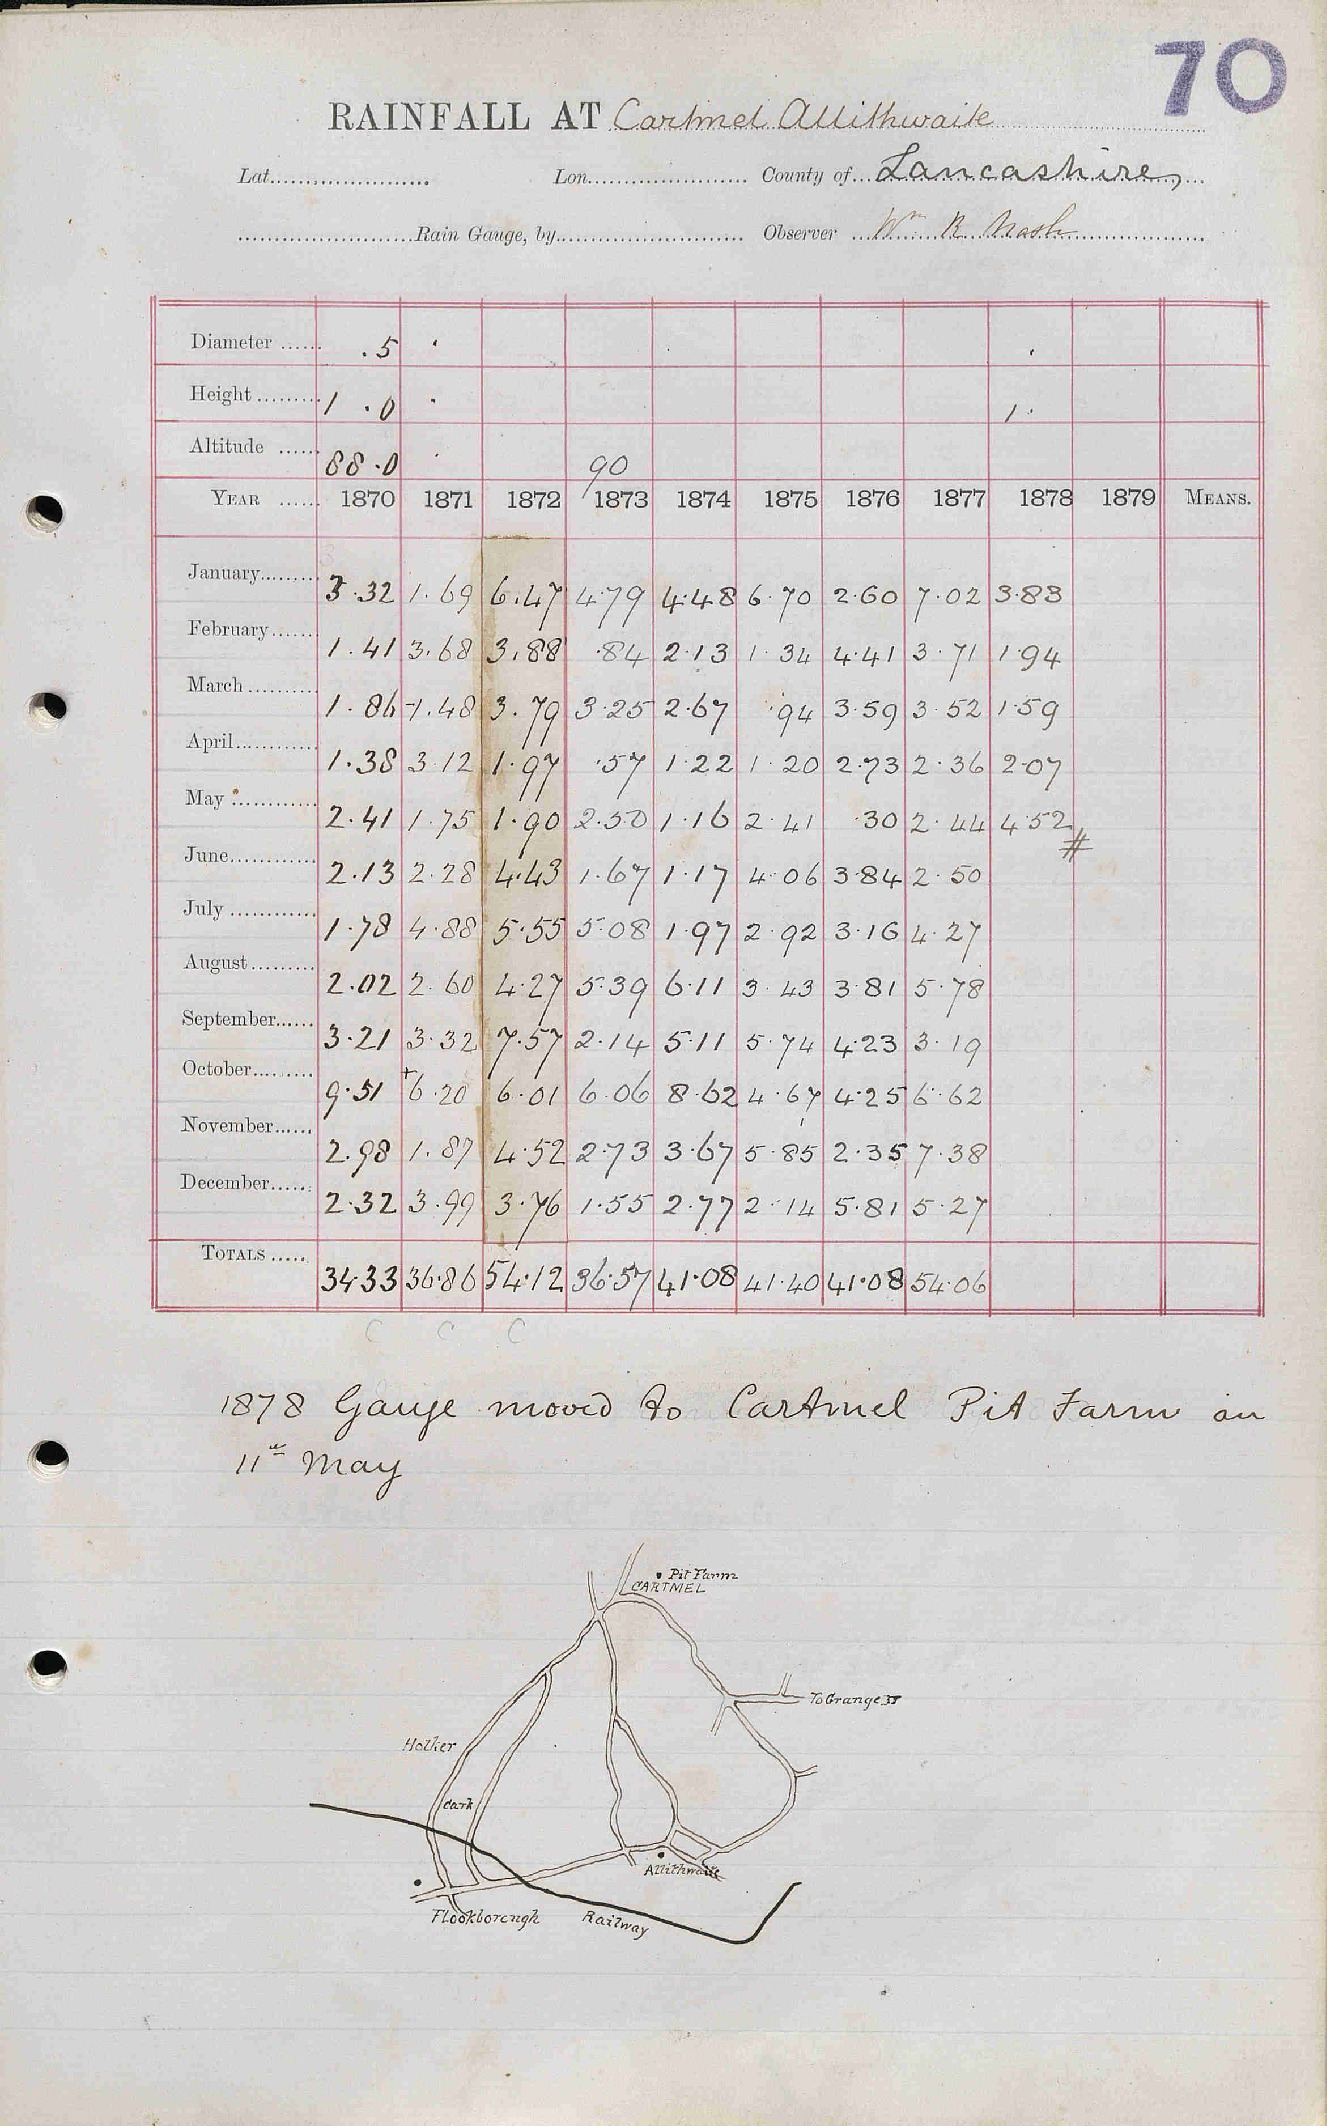 70
RAINFALL AT Cartmel Allithwaite
Lat. Lon. County of Lancashire,
Rain Gauge, by Observer Wm R Nash
Diameter .5
Height 1 .0 1.
Altitude 88.0 90
YEAR 1870 1871 1872 1873 1874 1875 1876 1877 1878 1879 MEANS.
January 3.32 1.69 6.47 4.79 4.48 6.70 2.60 7.02 3.83
February 1.41 3.68 3.88 .84 2.13 1.34 4.41 3.71 1.94
March 1.86 1.48 3.79 3.25 2.67 .94 3.59 3.52 1.59
April 1.38 3.12 1.97 .57 1.22 1.20 2.73 2.36 2.07
May 2.41 1.75 1.90 2.50 1.16 2.41 .30 2.44 4.52 #
June 2.13 2.28 4.43 1.67 1.17 4.06 3.84 2.50
July 1.78 4.88 5.55 5.08 1.97 2.92 3.16 4.27
August 2.02 2.60 4.27 5.39 6.11 3.43 3.81 5.78
September 3.21 3.32 7.57 2.14 5.11 5.74 4.23 3.19
October 9.51 +6.20 6.01 6.06 8.62 4.67 4.25 6.62
November 2.98 1.87 4.52 2.73 3.67 5.85 2.35 7.38
December 2.32 3.99 3.76 1.55 2.77 2.14 5.81 5.27
TOTALS 34.33 36.86 54.12 36.57 41.08 41.40 41.08 54.06
C C C
1878 Gauge moved to Cartmel Pit Farm on
11th May
Pit Farm
CARTMEL
To Grange
Holker
Cark
Allithwaite
Flookborough Railway